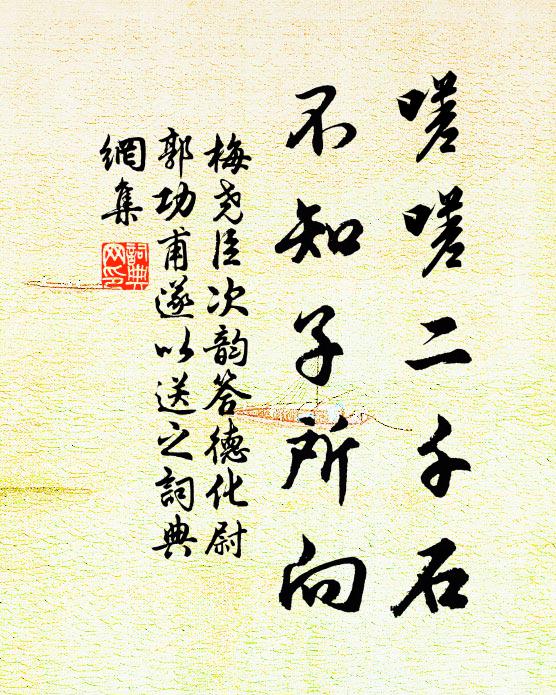 嗟嗟二千石
不知子所向
梅尧臣次韵答德化尉
郭功甫遂以送之詞典
網集
詞典网印